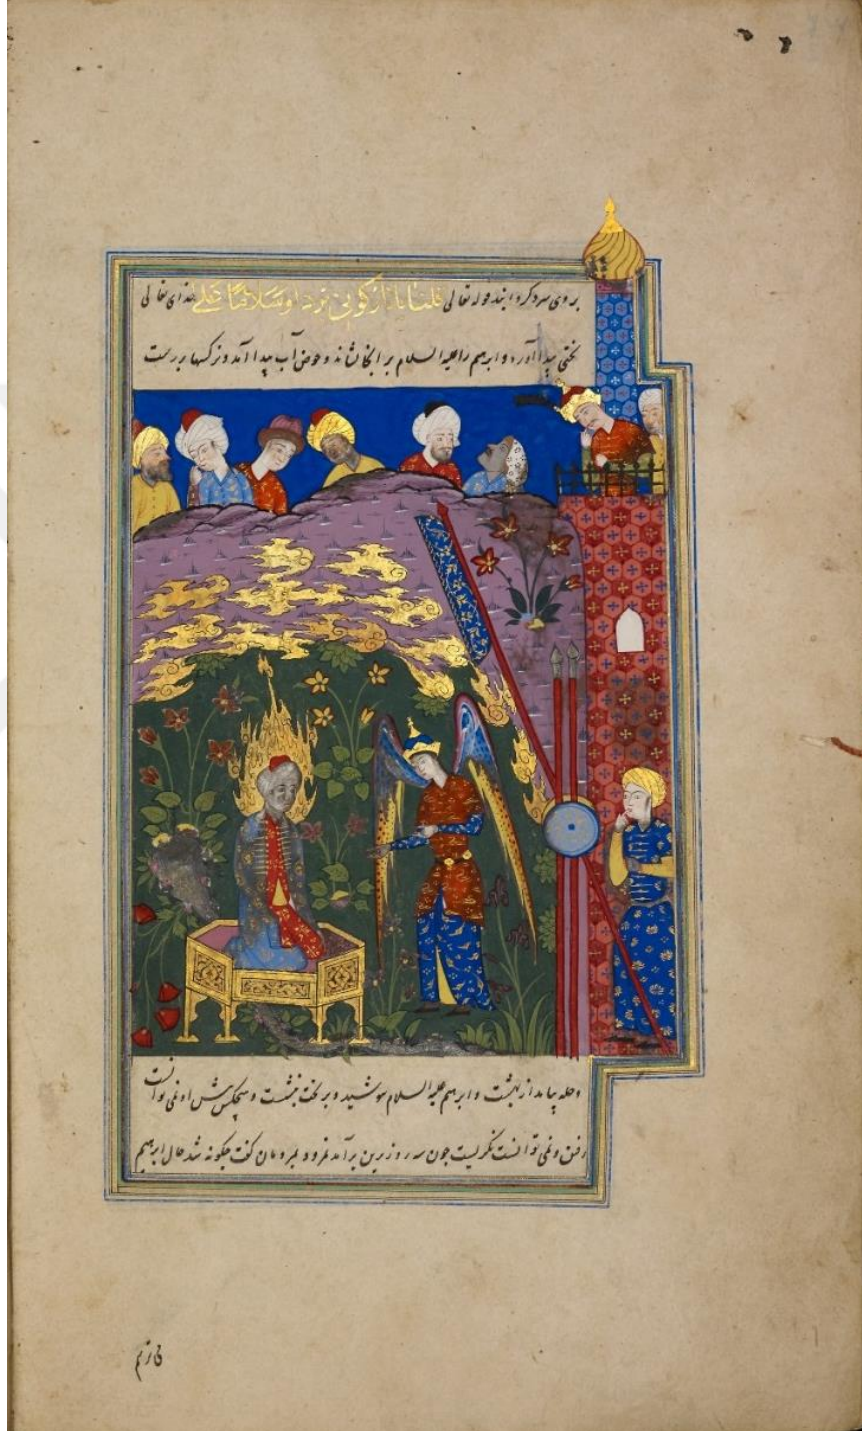 بر وی سرد کردانید قوله تعالی قلنا یا نار کونی بردا وسلاما علی خدای تعالی
تختی پیدا آورد و ابرهیم را علیه السلام بر انجا نشاند و حوض آب پیدا آمد و نرکسها بررست
وحله بیامد از بهشت و ابرهیم علیه السلام بپوشید و بر تخت بنشست و هیچکس پیش او نمی توانست
رفتن و نمی توانست نکریست چون سه روز برین برآمد نمرود بمردمان کفت چکونه شد حال ابرهیم